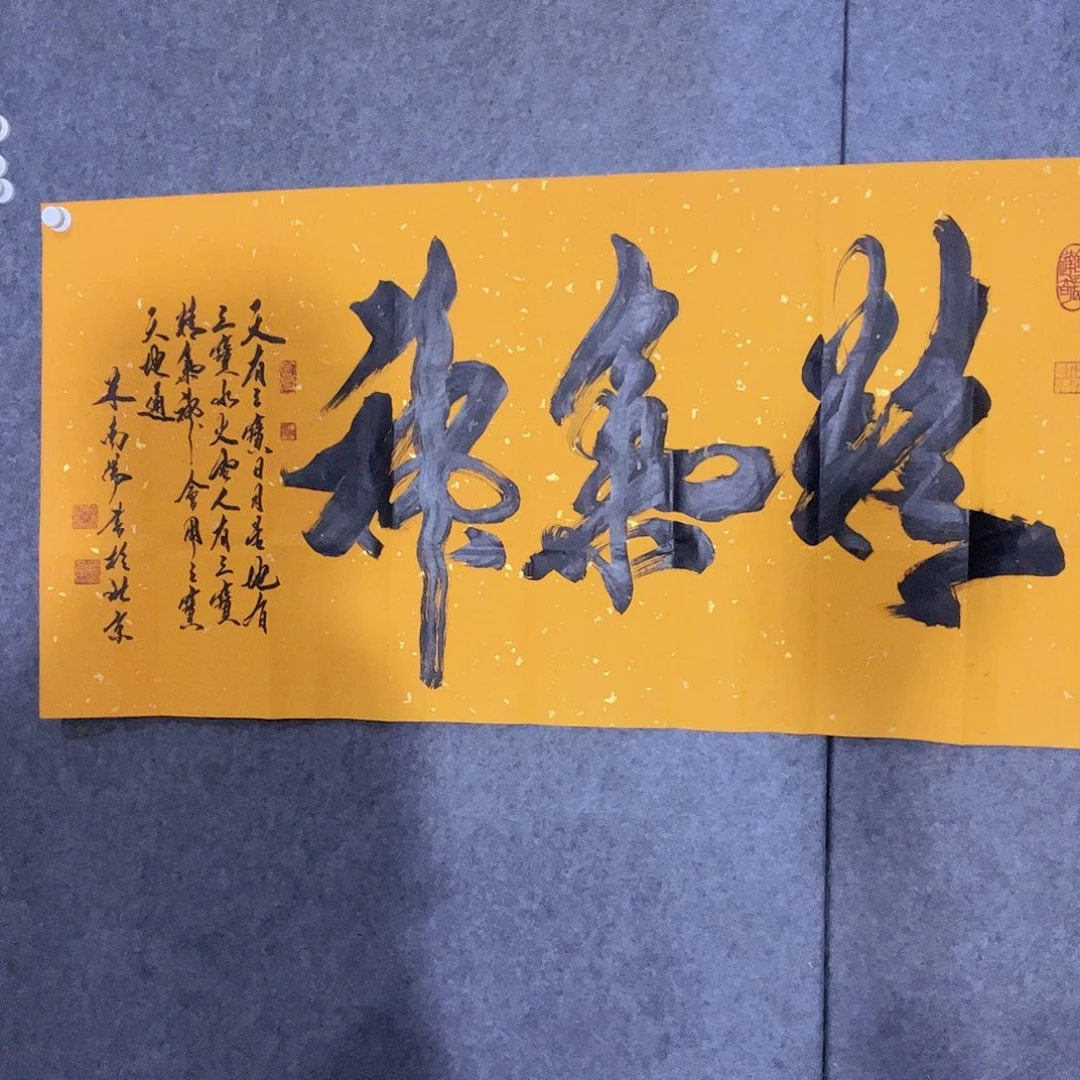 精氣神
天有三寶日月星地有
三寶水火風人有三寶
精氣神會用三寶
天地通
米南陽書於北京